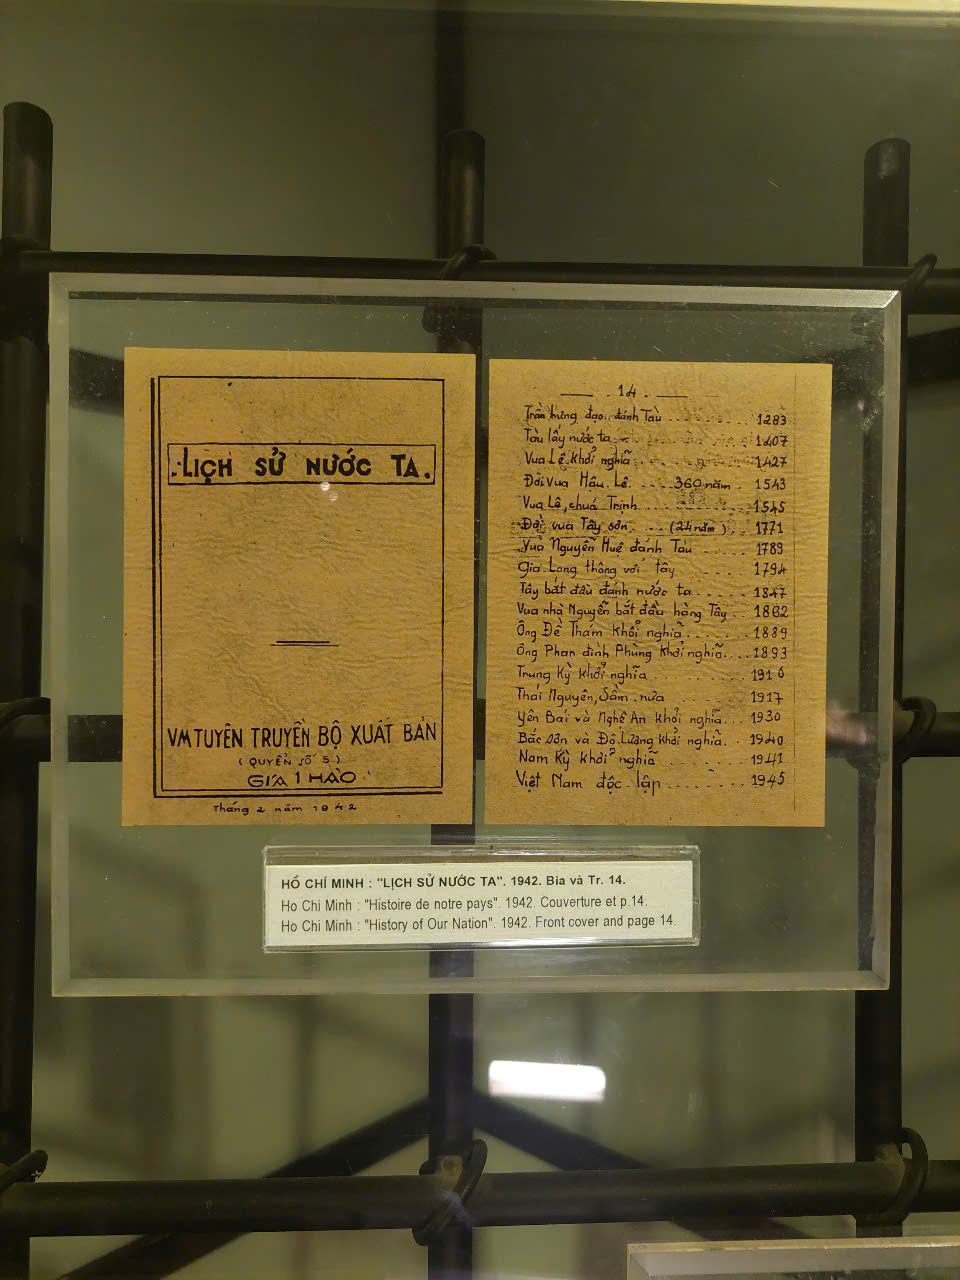 LỊCH SỬ NƯỚC TA.
VM TUYÊN TRUYỀN BỘ XUẤT BẢN
( QUYỂN SỐ 5 )
GIÁ 1 HÀO
Tháng 2 năm 1942
14.
Trần hưng đạo đánh Tàu ........ 1283
Tàu lấy nước ta ........ 1407
Vua Lê khởi nghĩa ........ 1427
Đời vua Hậu Lê .... 360 năm . 1543
Vua Lê, chuá Trịnh ........ 1545
Đời vua Tây sơn .... (24 năm) .. 1771
Vua Nguyễn Huệ đánh Tàu ...... 1789
Gia Long thông với tây ....... 1794
Tây bắt đầu đánh nước ta ...... 1847
Vua nhà Nguyễn bắt đầu hàng Tây .. 1862
Ông Đề Thám khởi nghĩa ....... 1889
Ông Phan đình Phùng khởi nghĩa .... 1893
Trung Kỳ khởi nghĩa ......... 1916
Thái Nguyên, Sầm nưa ........ 1917
Yên Bái và Nghệ An khởi nghĩa ... 1930
Bắc sơn và Đô Lương khởi nghĩa . . 1940
Nam Kỳ khởi nghĩa ......... 1941
Việt Nam độc lập ........ 1945
HỒ CHÍ MINH : "LỊCH SỬ NƯỚC TA". 1942. Bìa và Tr. 14.
Ho Chi Minh : "Histoire de notre pays". 1942. Couverture et p.14.
Ho Chi Minh : "History of Our Nation". 1942. Front cover and page 14.